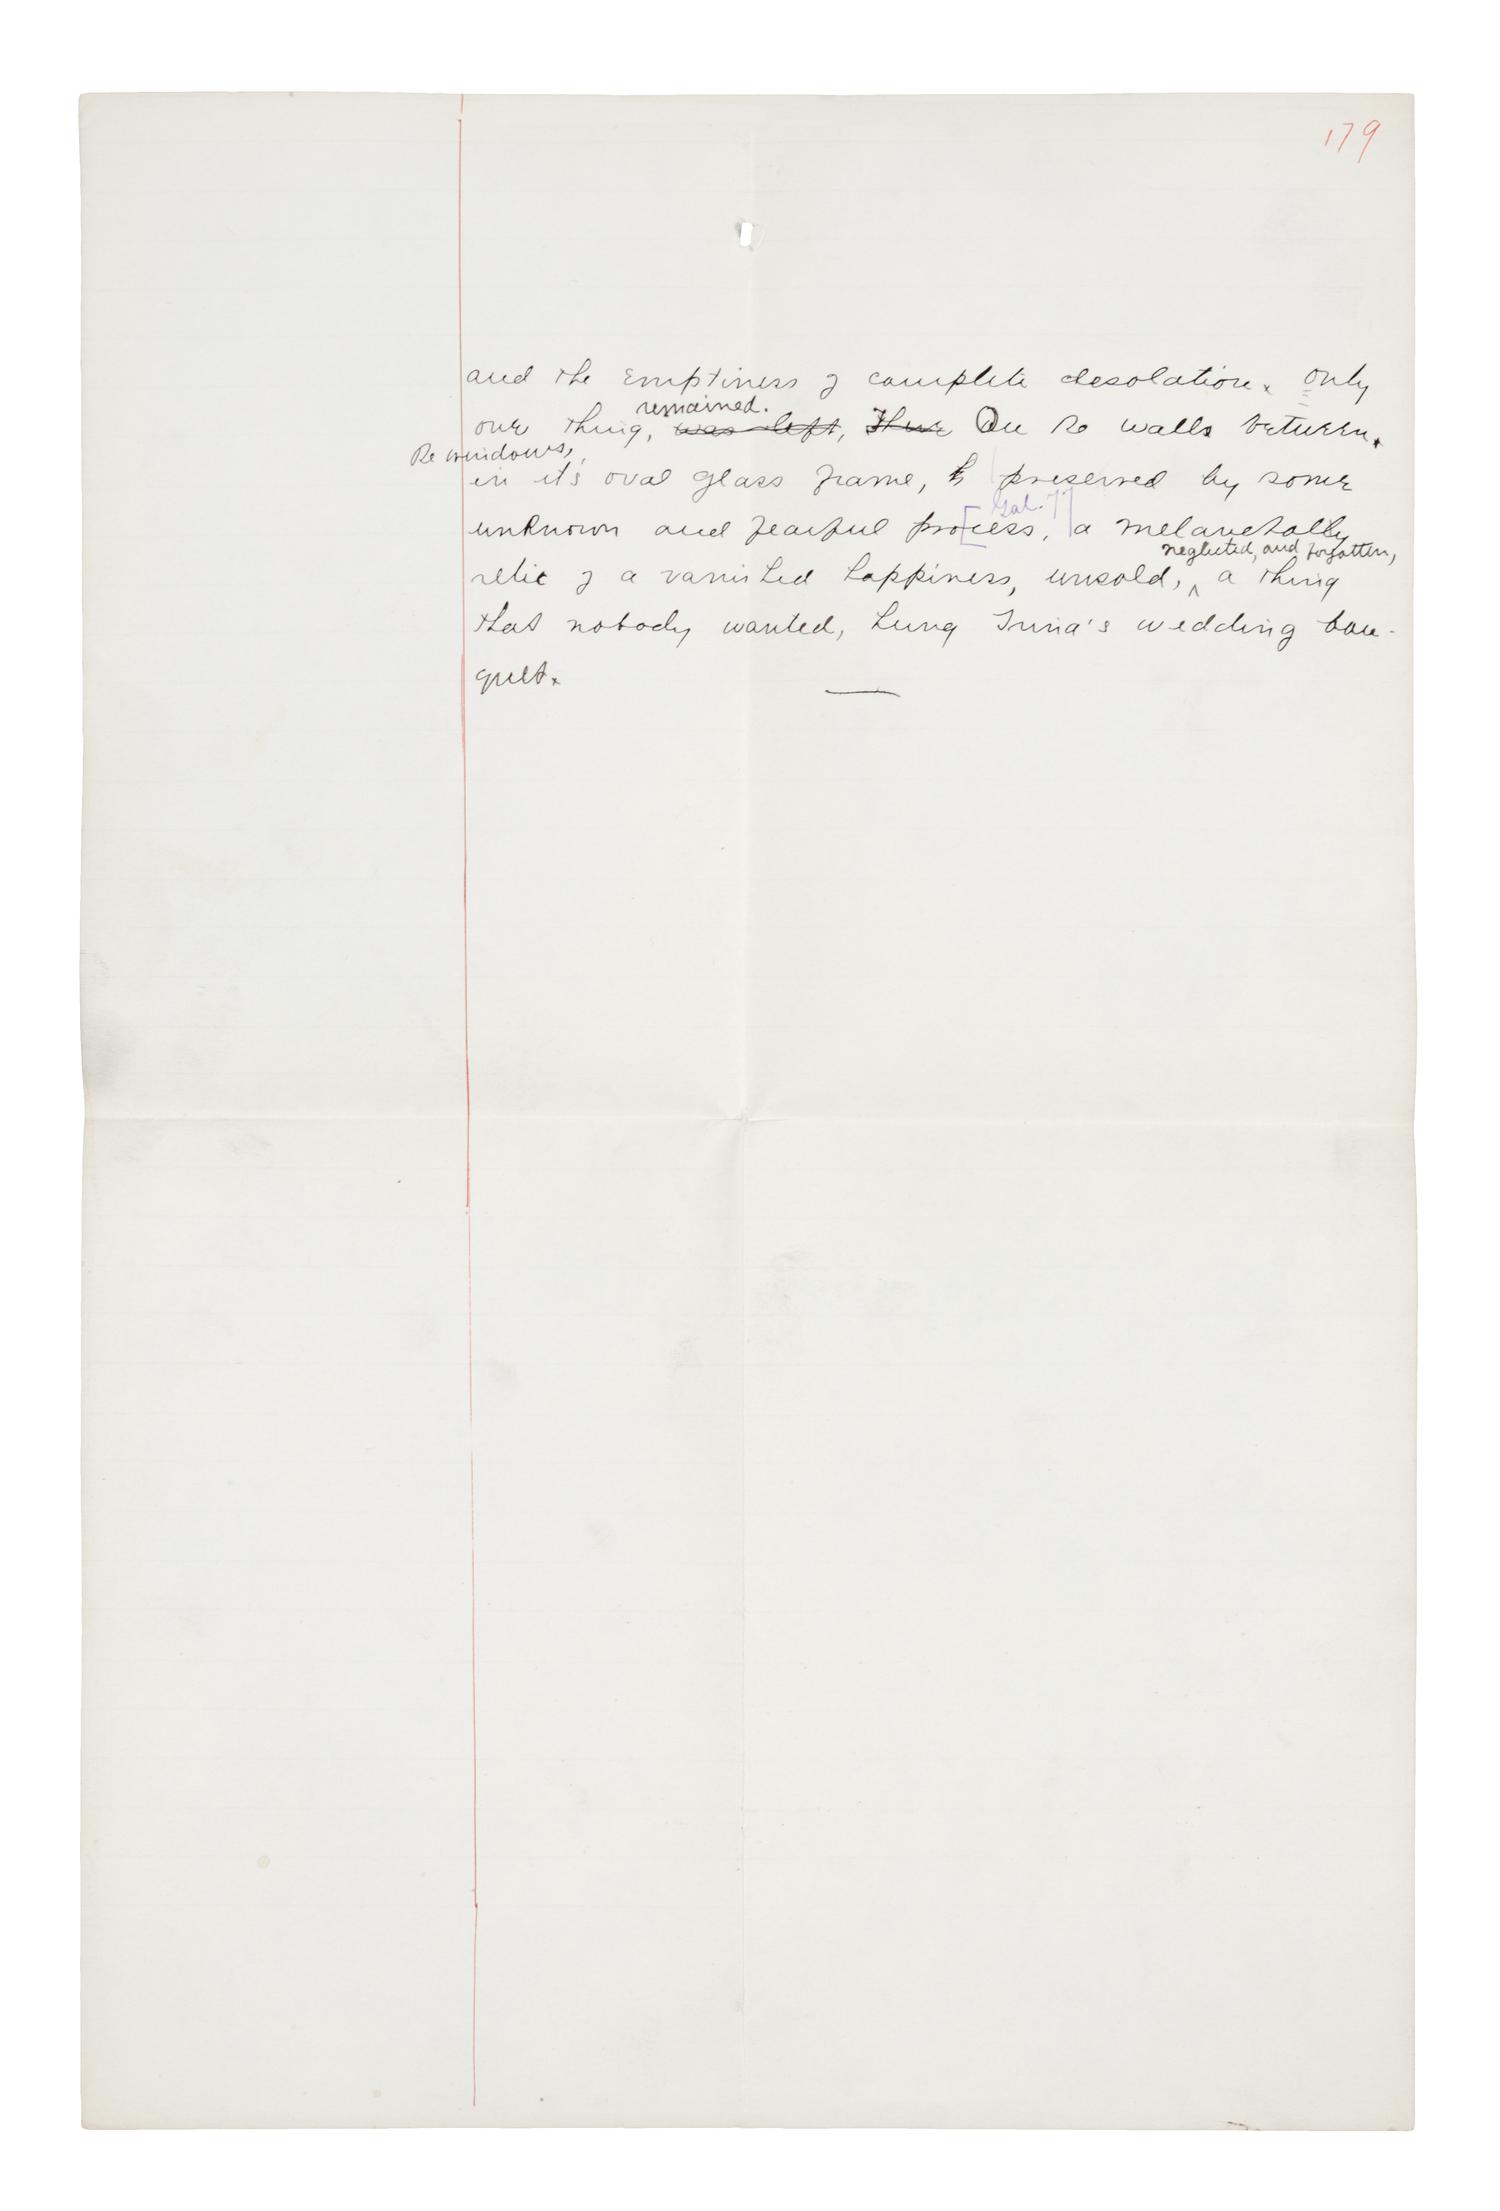 179
and the emptiness of complete desolation. Only
remained.
one thing, was left, There On the walls between
the windows,
in it's oval glass frame, preserved by some
Gal. 77
unknown and fearful process, a melancholly
neglected, and forgotten,
relic of a vanished happiness, unsold, ^ a thing
that nobody wanted, hung Trina's wedding bou-
quet.